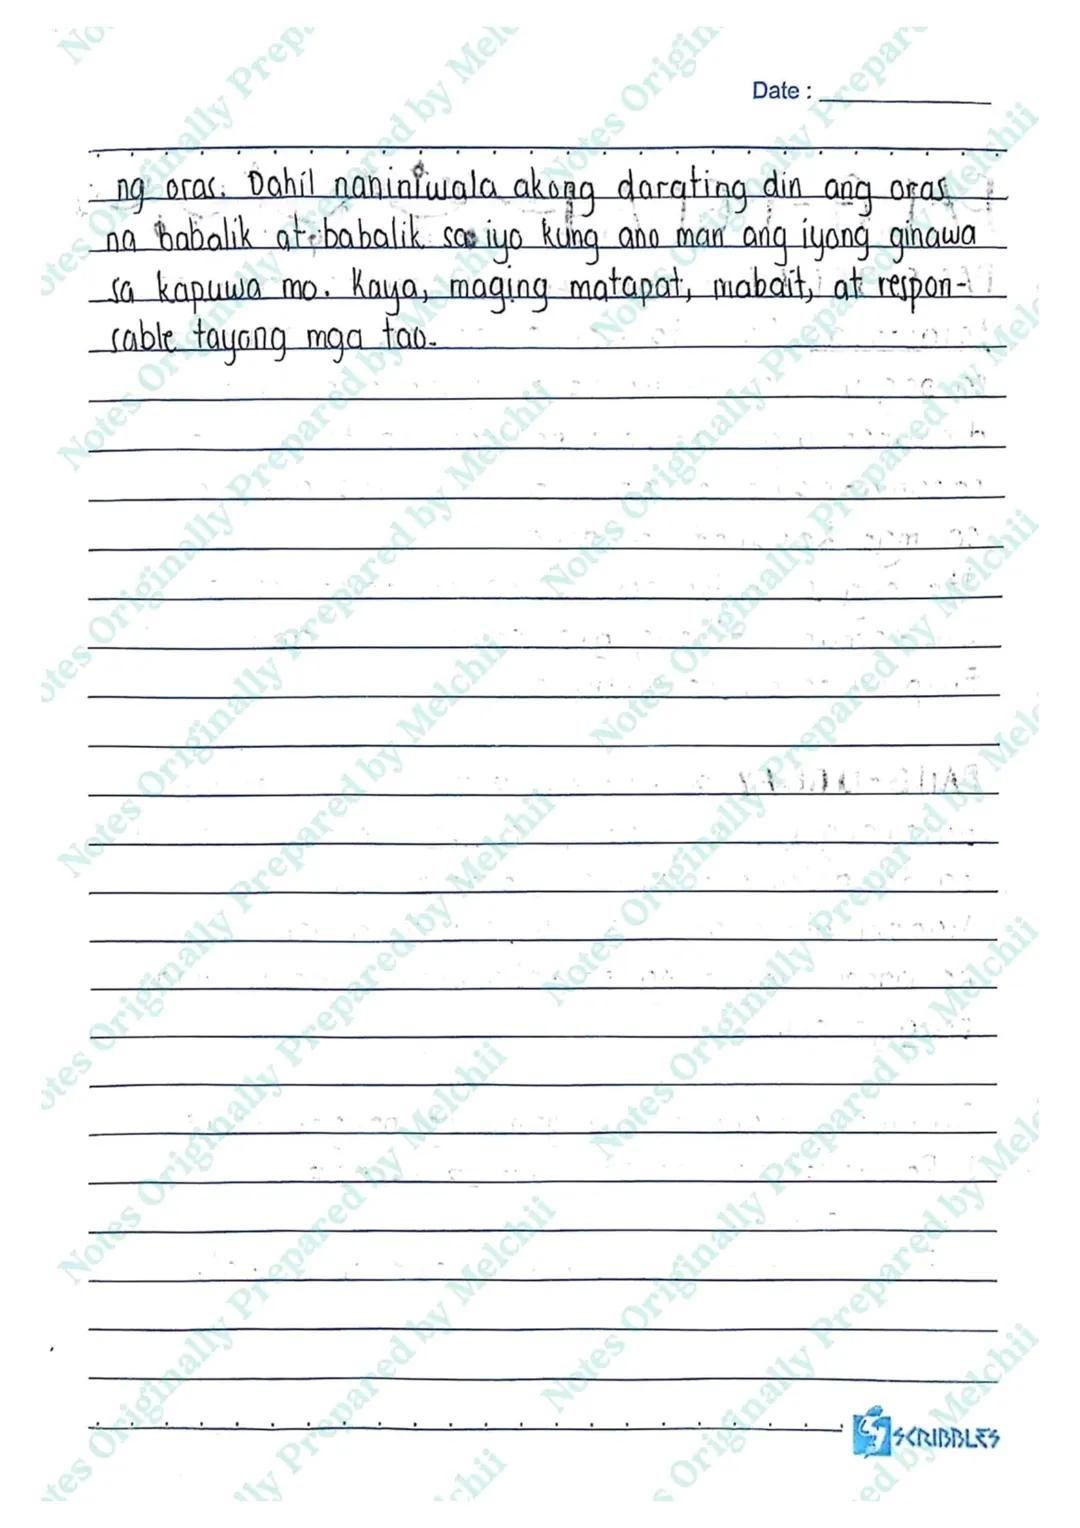 Date :
ng oras. Dahil naniniwala akong darating din ang oras
na babalik at babalik sa iyo kung ano man ang iyong ginawa
sa kapuwa mo. Kaya, maging matapat, mabait, at respon-
sable tayong mga tao.
SCRIBBLES
Notes Originally Prepared by Melchii